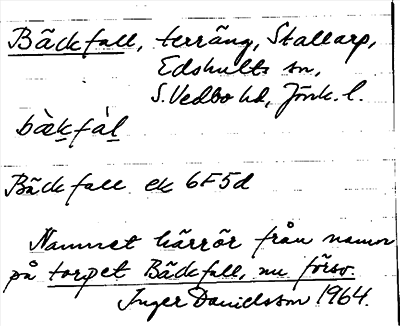 Bäckfall, terräng, Stallarp,
Edshults sn,
S. Vedbo hd, Jönk. l.
bàkfàl
Bäckfall ek 6F5d
Namnet härrör från namn
på torpet Bäckfall, nu försv.
Inger Danielsson 1964.